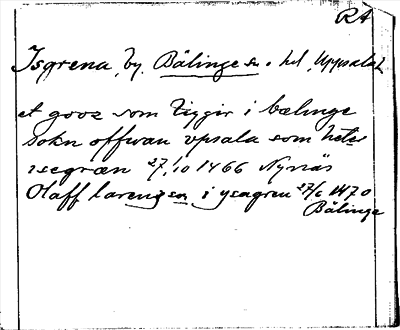 RA
Isgrena, by, Bälinge sn. o. hd, Uppsala l
et gooz som ligger i bælinge
sokn offwan vpsala som heter
isegræn 27/10 1466 Nynäs
Olaff larensson i ysagren 27/6 1470
Bälinge